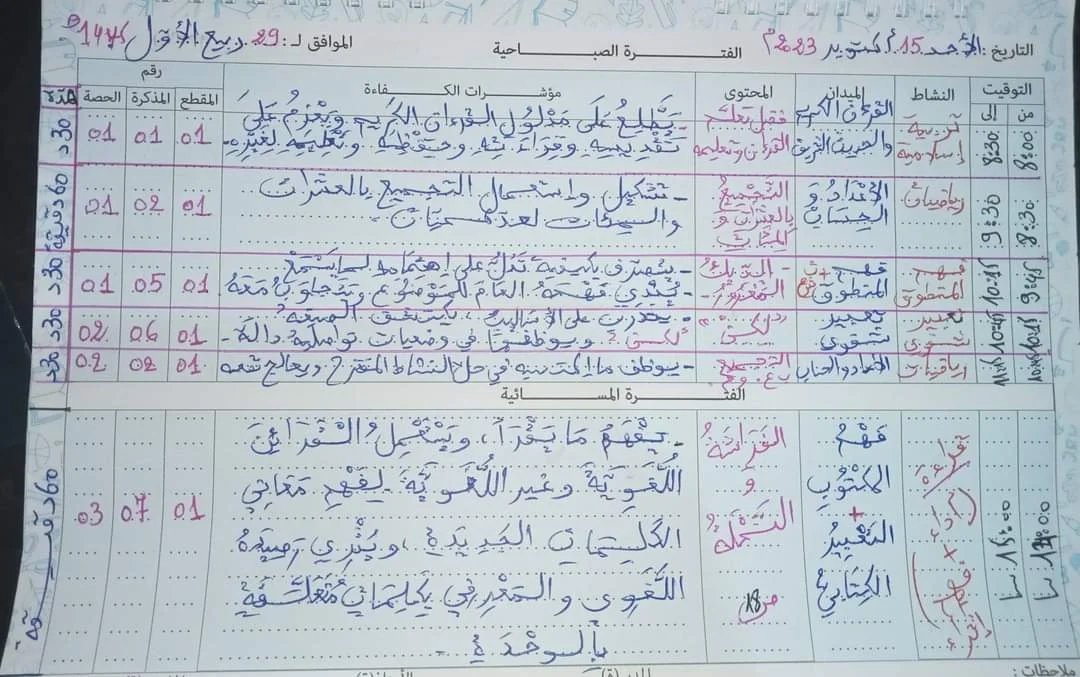 التاريخ: الأحد 15 أكتوبر 2023م الفتـــرة الصبـــاحية الموافق لـ: 29 ربيع الأول 1445هـ
التوقيت النشاط الميدان المحتوى مؤشرات الكـــفاءة رقم
من إلى المقطع المذكرة الحصة المدة
8:00 8:30 تربية إسلامية القرءان الكريم والحديث الشريف فضل تعلم القرآن وتعليمه
يطلع على مدلول القرءان الكريم ويعزم على
تقديسه وقراءته وحفظه وتعليمه لغيره- 01 01 01 30د
8:30 9:30 رياضيات الأعداد و الحساب التجميع بالعشرات و المئات
- تشكيل واستعمال التجميع بالعشرات
والمئات لعد كميات 01 02 01 60 دقيقة
9:45 10:15 فهم المنطوق فهم المنطوق - الديك المغرور -
- يتصرف بكيفية تدل على اهتمامه لما يستمع
يبدي فهمه العام للموضوع ويتجاوب معه 01 05 01 30د
10:15 10:45 تعبير شفوي تعبير شفوي لكن
ويوظفها في وضعيات تواصلية دالة - 01 06 02 30د
11:15 رياضيات الأعداد والحساب التجميع
- يوظف ما اكتسبه في حل النشاط المقترح ويعالج نقصه 01 02 02 30د
الفتـــرة المســـائية
15:00 قراءة (أداء + فهم) فهم المكتوب + التعبير الكتابي الفراشة و النملة ص 18
- يفهم ما يقرأ، ويستعمل القرائن
اللغوية وغير اللغوية لفهم معاني
الكلمات الجديدة، ويثري رصيده
اللغوي والمعرفي بكلمات متعلقة
بالوحدة - 01 07 03 60 دقيقة
ملاحظات: